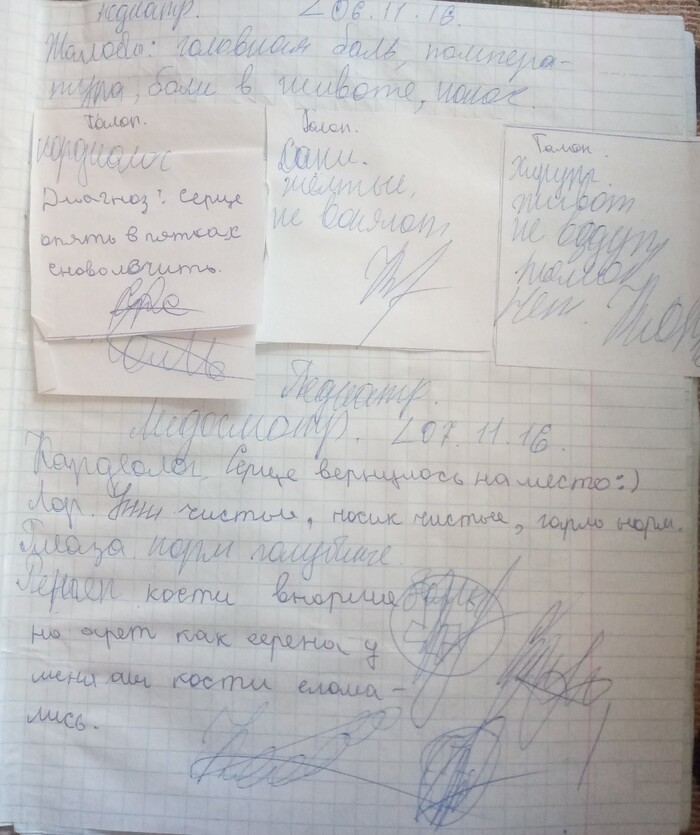 Педиатр. 06.11.16.
Жалобы: головная боль, темпера-
тура, боли в животе, понос.
Талон.
кардиолог
Диагноз: Серце
опять в пятках
сноволочить.
Талон.
Саки.
жёлтые,
не воняют
Талон.
Хирург.
живот
не
Педиатр.
Медосмотр. 07.11.16.
Кардеолог. Серце вернулось на место:)
Лор. Ухи чистые, носик чистые, горло норм.
Глаза норм голубые.
кости внорме
но арет как серена у
меня аш кости слома-
лись.